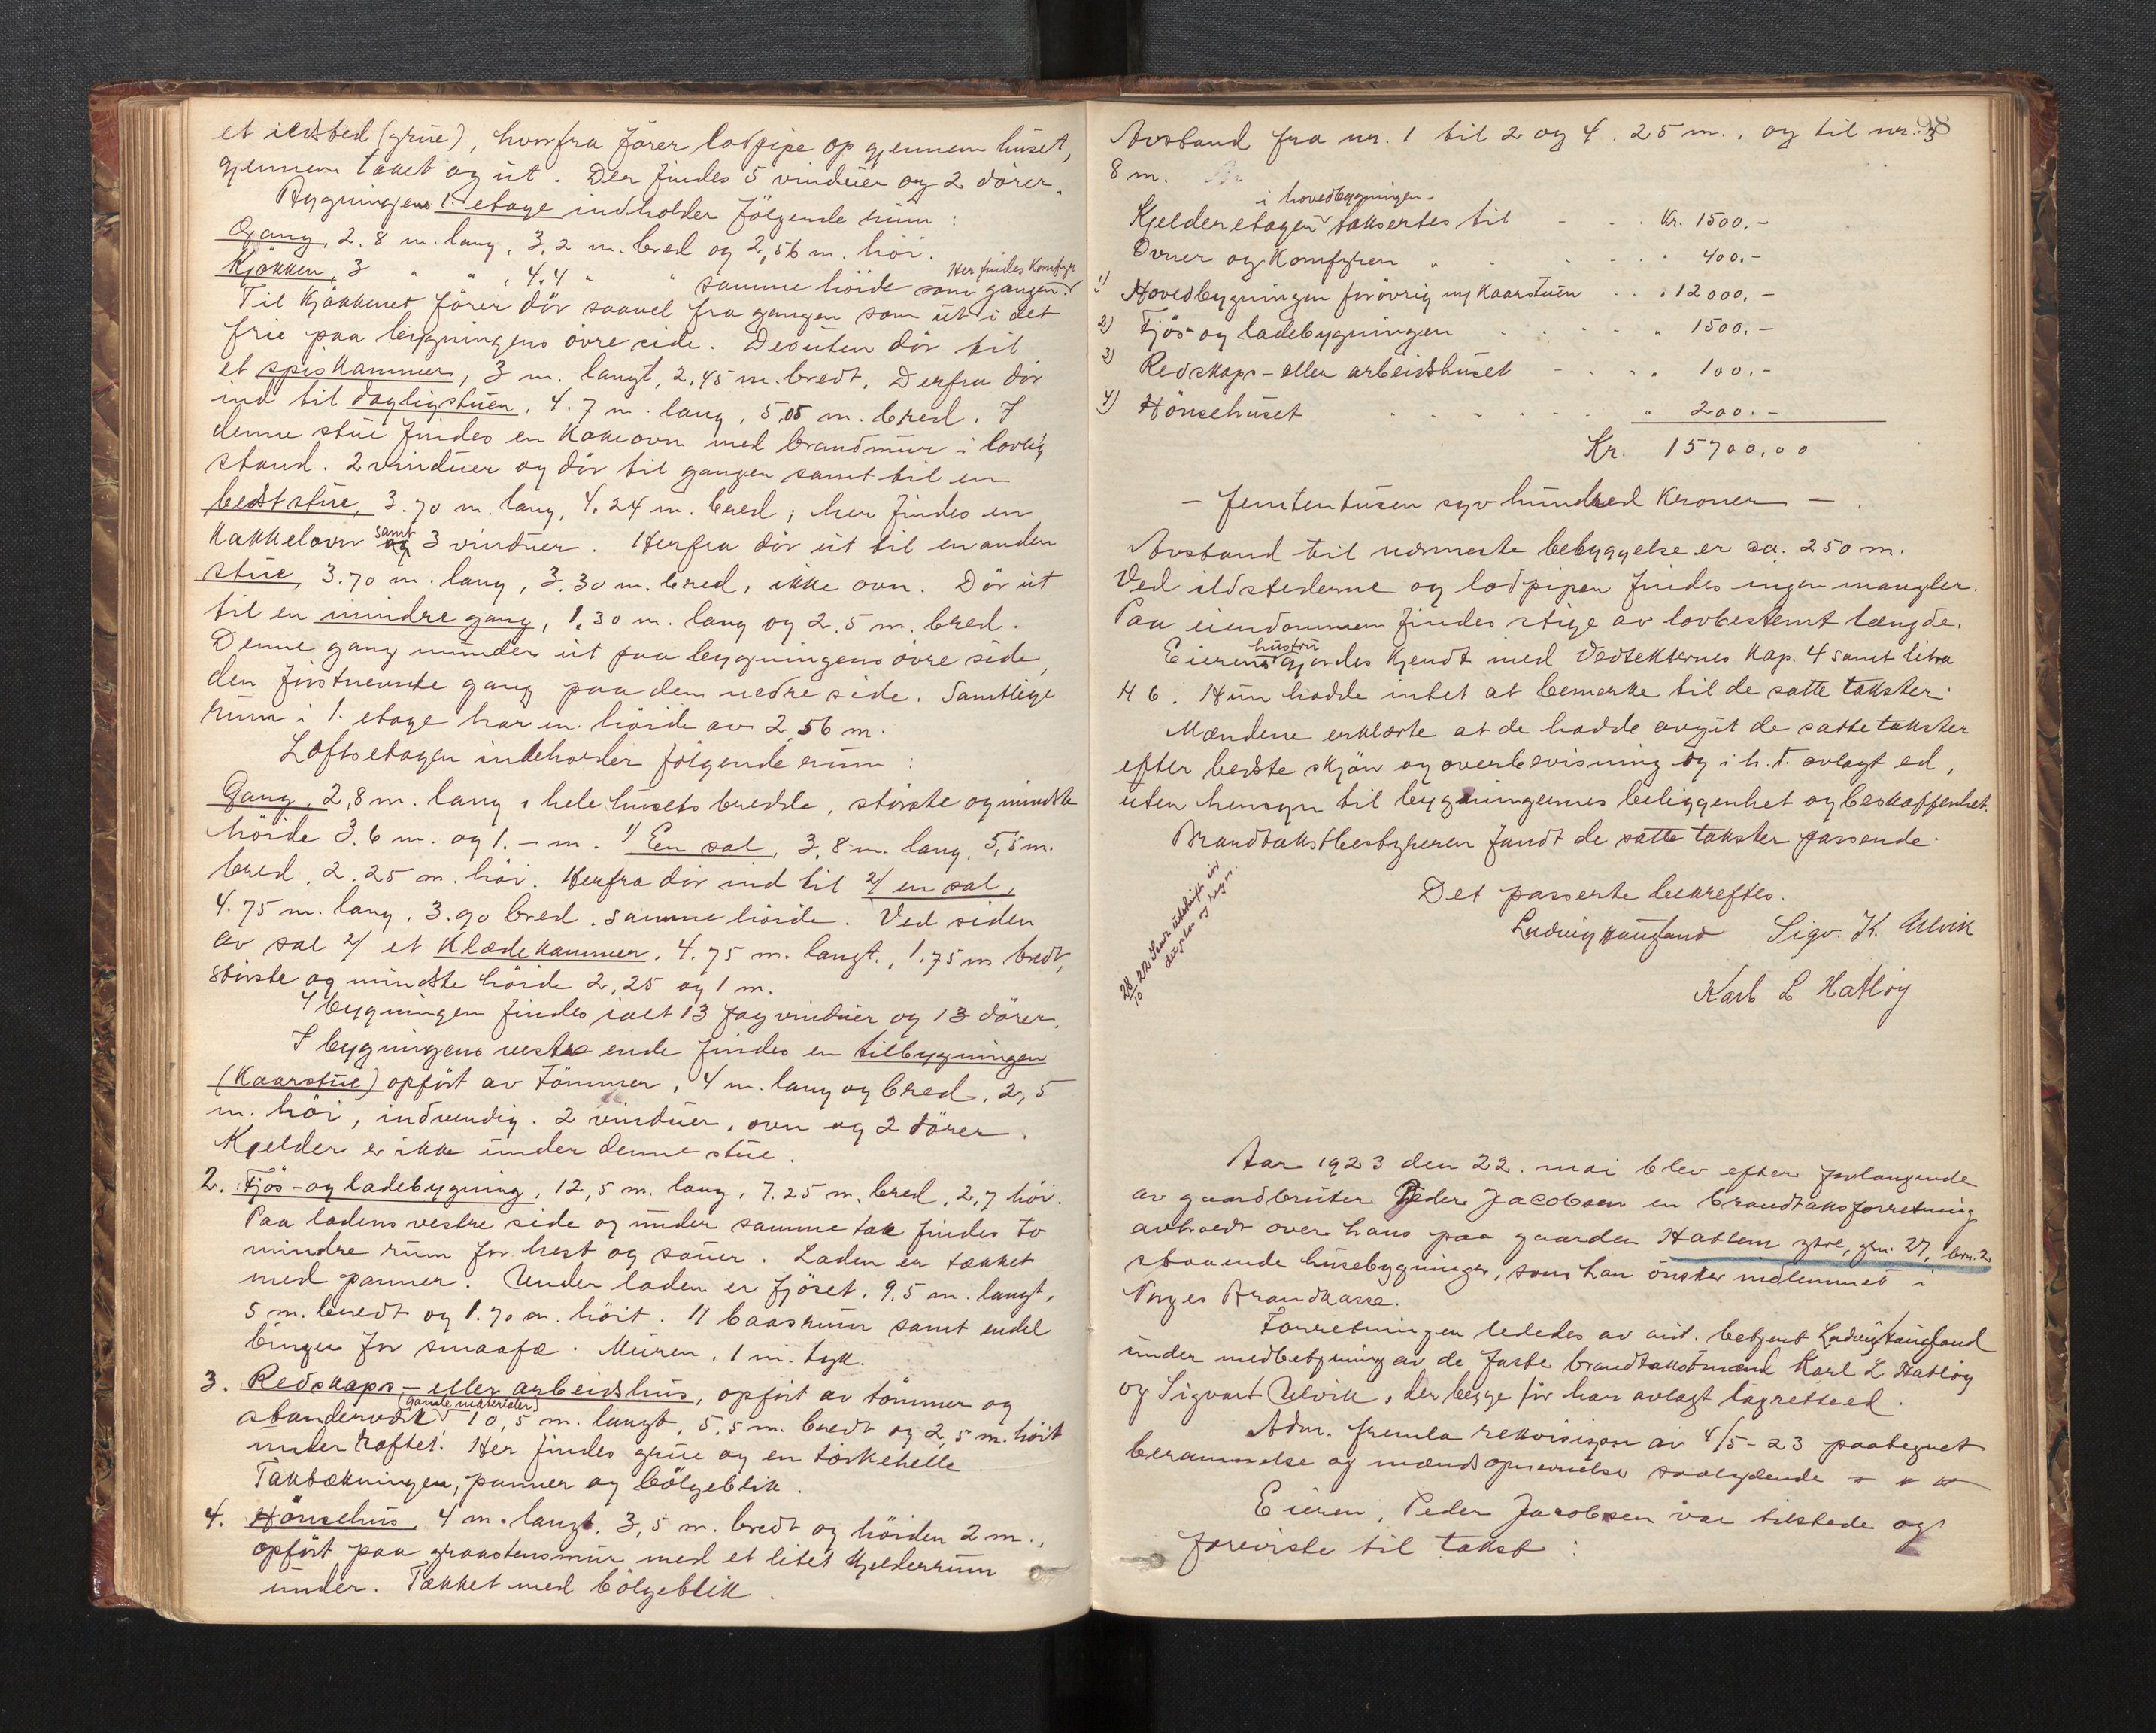 et ildsted (grue), hvorfra förer lodpipe op gjennem huset,
gjennem taket og ut. Der findes 5 vinduer og 2 dörer.
Bygningens 1. etage indholder fölgende rum:
Gang, 2.8 m. lang, 3,2 m. bred og 2,56 m. höi.
Her findes Komfyr
Kjökken, 3 " " , 4.4 " " samme höide som gangen.
Til Kjökkenet förer dör saavel fra gangen som ut i det
frie paa bygningens övre side. Desuten dör til
et spiskammer, 3 m. langt, 2,45 m. bredt. Derfra dör
ind til dagligstuen, 4.7 m. lang, 5,05 m. bred. I
denne stue findes en Kokeovn med brandmur i lovlig
stand. 2 vinduer og dör til gangen samt til en
bedststue, 3.70 m. lang, 4.24 m. bred; her findes en
Kakkelovn samt 3 vinduer. Herfra dör ut til en anden
stue, 3.70 m. lang, 3.30 m. bred, ikke ovn. Dör ut
til en mindre gang, 1.30 m. lang og 2.5 m. bred.
Denne gang munder ut paa bygningens övre side,
den förstnevnte gang paa den nedre side. Samtlige
rum i 1. etage har en höide av 2,56 m.
Loftsetagen indeholder fölgende rum:
Gang, 2,8 m. lang, hele husets bredde, störste og mindste
höide 3.6 m. og 1.- m. 1/ En sal, 3,8 m. lang, 5,5 m.
bred, 2.25 m. höi. Herfra dör ind til 2/ en sal,
4.75 m. lang, 3.90 bred, samme höide. Ved siden
av sal 2/ et Klædekammer, 4.75 m. langt, 1,75 m bredt,
störste og mindste höide 2,25 og 1 m.
I bygningen findes ialt 13 fag vinduer og 13 dörer.
I bygningens vestre ende findes en tilbygningen
(Kaarstue) opfört av Tömmer, 4 m. lang og bred, 2,5
m. höi, indvendig. 2 vinduer, ovn og 2 dörer.
Kjelder er ikke under denne stue.
2. Fjös- og ladebygning, 12,5 m. lang, 7.25 m. bred, 2,7 höi.
Paa ladens vestre side og under samme tak findes to
mindre rum for hest og sauer. Laden er tækket
med panner. Under laden er fjöset, 9.5 m. langt,
5 m. bredt og 1.70 m. höit. 11 baasrum samt endel
binger for smaafæ. Muren, 1 m. tyk.
3. Redskaps- eller arbeidshus, opfört av tömmer og
(gamle materialer)
standerverk 10,5 m. langt, 5,5 m. bredt og 2,5 m. höit
under raftet. Her findes grue og en törkehelle.
Taktækningen, panner og bölgeblik.
4. Hönsehus, 4 m. langt, 3,5 m. bredt og höiden 2 m.,
opfört paa graastensmur med et litet Kjelderrum
under. Tækket med bölgeblik.
98
Avstand fra nr. 1 til 2 og 4, 25 m., og til nr. 3
8 m.
i hovedbygningen
Kjelderetagen taksertes til - . . Kr. 1500.-
Ovner og Komfyren " . . . " 400.-
1) Hovedbygningen forövrig m/ Kaarstuen . . " 12000.-
2) Fjös- og ladebygningen . . . . " 1500.-
3) Redskaps- eller arbeidshuset - . . " 100.-
4) Hönsehuset . . . . . . " 200.-
Kr. 15700,00
- femtentusen syv hundred Kroner -
Avstand til nærmeste bebyggelse er ca. 250 m.
Ved ildstederne og lodpipen findes ingen mangler.
Paa eiendommen findes stige av lovbestemt længde.
hustru
Eierens gjordes kjendt med Vedtekternes Kap. 4 samt litra
H 6. Hun hadde intet at bemerke til de satte takster.
Mændene erklærte at de hadde avgit de satte takster
efter bedste skjön og overbevisning og i h.t. avlagt ed,
uten hensyn til bygningernes beliggenhet og beskaffenhet.
Brandtakstbestyreren fandt de satte takster passende.
Det passerte bekreftes.
Ludvig Haugland Sigv. K. Ulvik
Karl L Hatlöy
28/10 22 Sendt utskrift
og regn.
Aar 1923 den 22. mai blev efter forlangende
av gaardbruker Peder Jacobsen en brandtaksforretning
avholdt over hans paa gaarden Hatlem ytre, gnr. 27, brn. 2
staaende husebygninger, som han önsker indlemmet i
Norges Brandkasse.
Forretningen lededes av aut. betjent Ludvig Haugland
under medbetjening av de faste brandtakstmænd Karl L Hatlöy
og Sigvart Ulvik, der begge för har avlagt lagretteed.
Adm. fremla rekvisisjon av 4/5-23 paategnet
berammelse og mændsopnevnelse saalydende
Eieren, Peder Jacobsen var tilstede og
foreviste til takst: